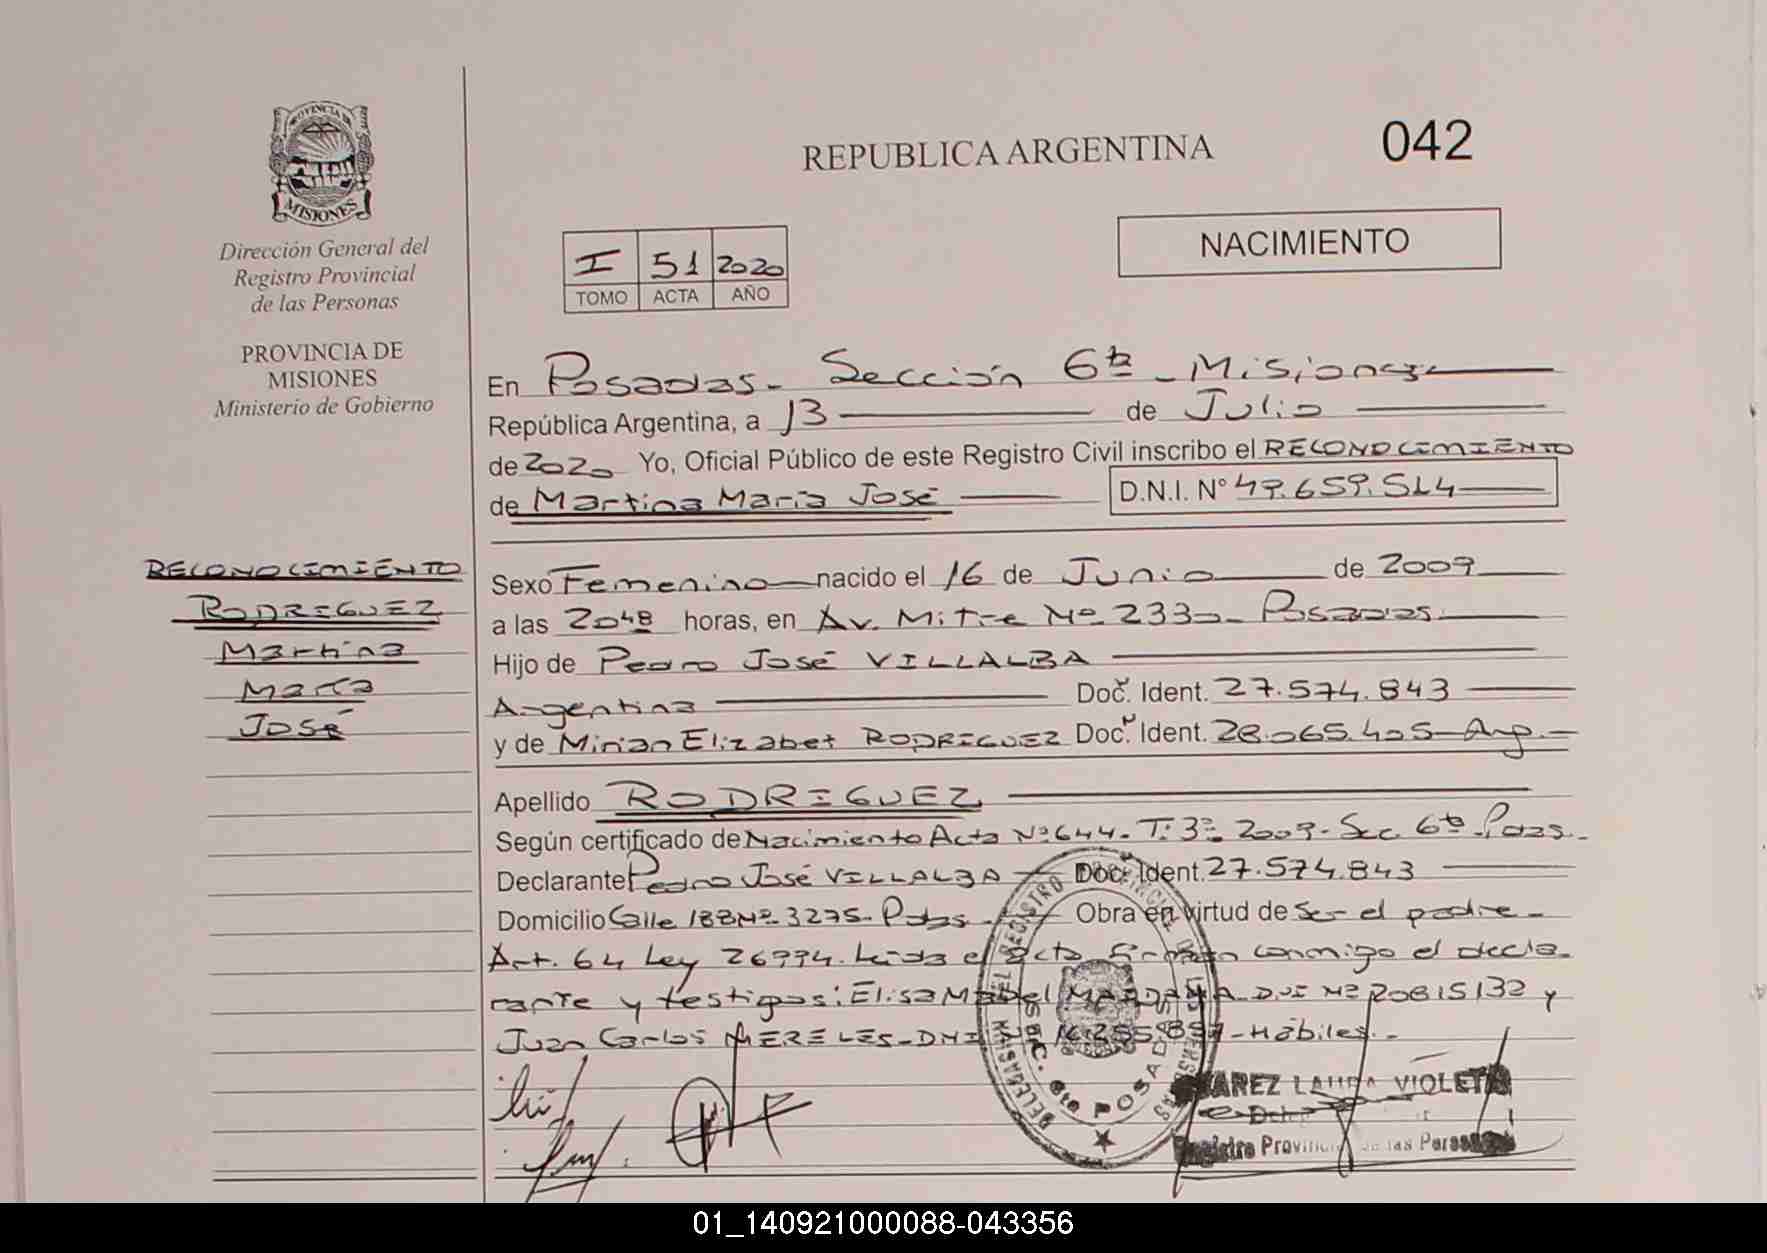 PROVINCIA DE
MISIONES
Dirección General del
Registro Provincial
de las Personas
PROVINCIA DE
MISIONES
Ministerio de Gobierno
RECONOCIMIENTO
RODRIGUEZ
Martina
María
José
REPUBLICA ARGENTINA
042
I 51 2020
TOMO ACTA AÑO
NACIMIENTO
En Posadas - Sección 6ta - Misiones
República Argentina, a 13 de Julio
de 2020 Yo, Oficial Público de este Registro Civil inscribo el RECONOCIMIENTO
de Martina María José D.N.I. N° 49.659.514
Sexo Femenino nacido el 16 de Junio de 2009
a las 2048 horas, en Av. Mitre Nº 2330 - Posadas.
Hijo de Pedro José VILLALBA
Argentina Doc. Ident. 27.574.843
y de Mirian Elizabet RODRIGUEZ Doc. Ident. 28.065.405 - Arg. -
Apellido RODRIGUEZ
Según certificado de Nacimiento Acta Nº 644 - T: 3º 2009 - Sec. 6ta - Pdas.
Declarante Pedro José VILLALBA Doc. Ident. 27.574.843
Domicilio Calle 188 Nº 3275 - Pdas. Obra en virtud de Ser el padre -
Art. 64 Ley 26994. Leida el acta Firman conmigo el decla-
rante y testigos: Elisa Mabel DNI Nº 20815132 y
Juan Carlos MERELES - DNI - Hábiles. -
DELEGACION DEL REGISTRO PROVINCIAL DE LAS PERSONAS
SEC. 6ta POSADAS
LAURA VIOLETA
Registro Provincial de las Personas
01_140921000088-043356